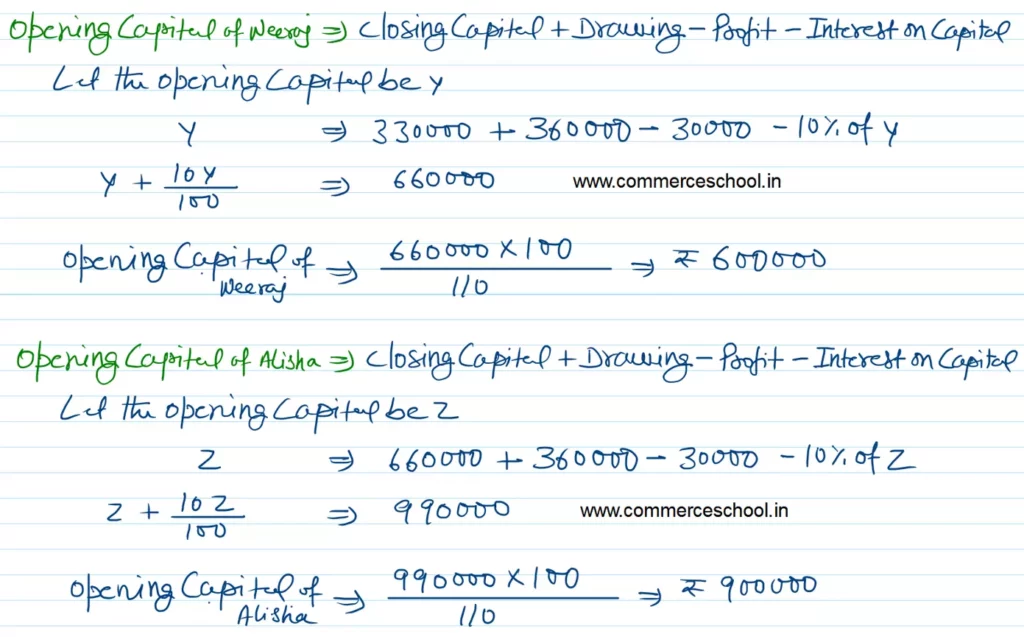 Opening Capital of Neeraj ⇒ Closing Capital + Drawing – Profit – Interest on Capital
Let the opening Capital be Y
Y ⇒ 330000 + 360000 – 30000 – 10% of Y
Y + 10Y/100 ⇒ 660000 www.commerceschool.in
Opening Capital of Neeraj ⇒ 660000 × 100/110 ⇒ ₹ 600000
Opening Capital of Alisha ⇒ Closing Capital + Drawing – Profit – Interest on Capital
Let the opening Capital be Z
Z ⇒ 660000 + 360000 – 30000 – 10% of Z
Z + 10Z/100 ⇒ 990000 www.commerceschool.in
Opening Capital of Alisha ⇒ 990000 × 100/110 ⇒ ₹ 900000